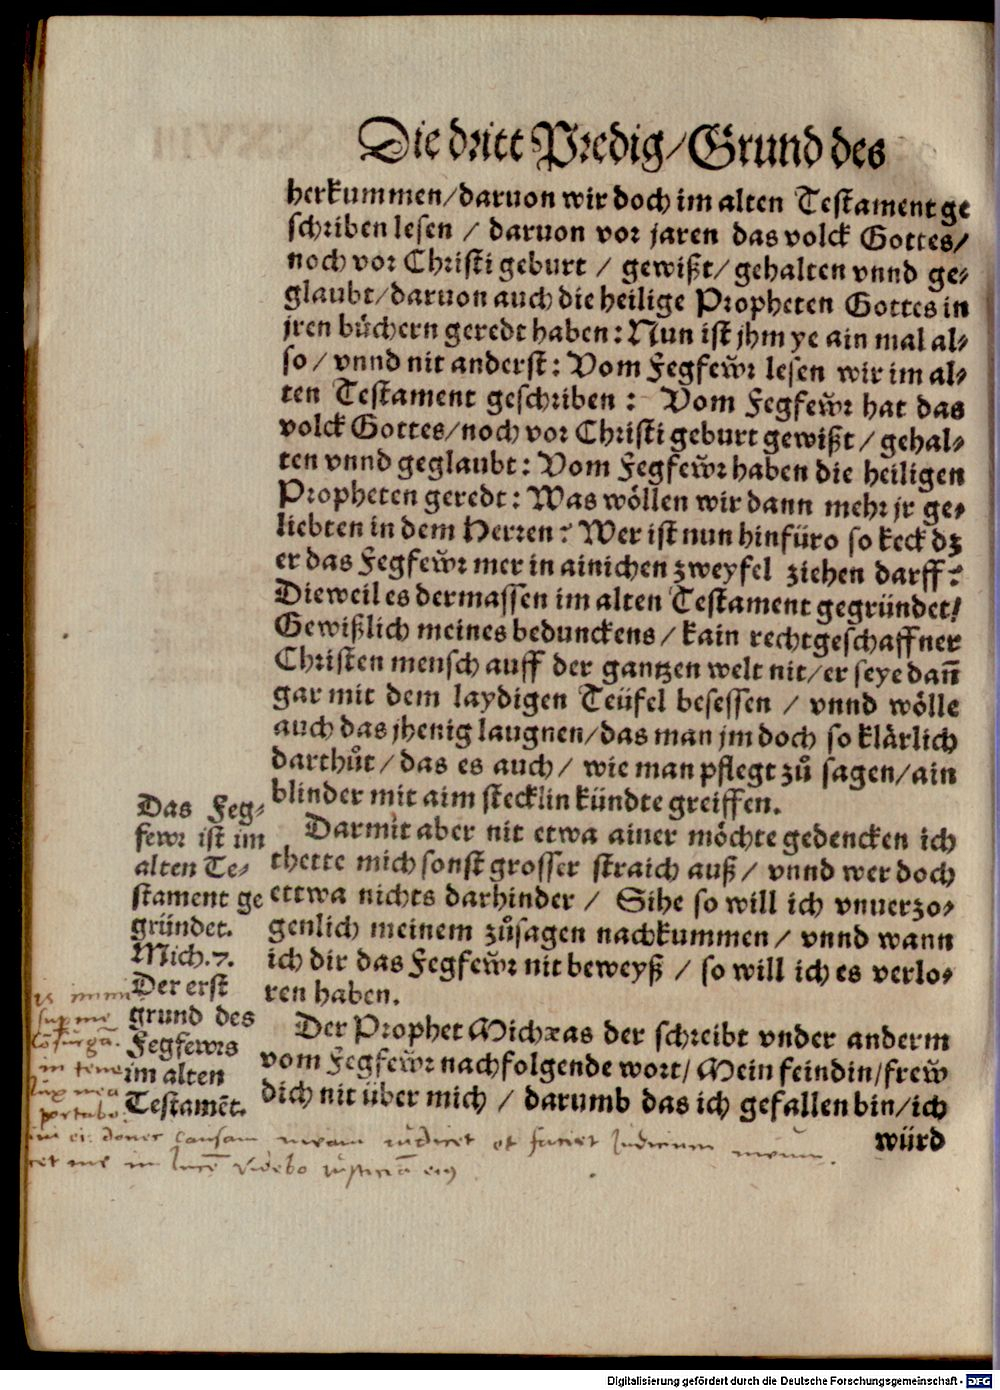 Die dritt Predig/Grund des
herkummen/daruon wir doch im alten Testament ge
schriben lesen / daruon vor jaren das volck Gottes/
noch vor Christi geburt / gewißt/gehalten vnnd ge-
glaubt/daruon auch die heilige Propheten Gottes in
jren bůchern geredt haben: Nun ist jhm ye ain mal al-
so / vnnd nit anderst: Vom Fegfewr lesen wir im al-
ten Testament geschriben: Vom Fegfewr hat das
volck Gottes/noch vor Christi geburt gewißt / gehal-
ten vnnd geglaubt: Vom Fegfewr haben die heiligen
Propheten geredt: Was wöllen wir dann mehr jr ge-
liebten in dem Herren? Wer ist nun hinfüro so keck dz
er das Fegfewr mer in ainichen zweyfel ziehen darff?
Dieweil es dermassen im alten Testament gegründet/
Gewißlich meines bedunckens / kain rechtgeschaffner
Christen mensch auff der gantzen welt nit/er seye dañ
gar mit dem laydigen Teüfel besessen / vnnd wölle
auch das jhenig laugnen/das man jm doch so klärlich
darthůt / das es auch / wie man pflegt zů sagen/ain
blinder mit aim stecklin kündte greiffen.
Darmit aber nit etwa ainer möchte gedencken ich
thette mich sonst grosser straich auß / vnnd wer doch
ettwa nichts darhinder / Sihe so will ich vnuerzo-
genlich meinem zůsagen nachkummen / vnnd wann
ich dir das Fegfewr nit beweyß / so will ich es verlo-
ren haben.
Der Prophet Michæas der schreibt vnder anderm
vom Fegfewr nachfolgende wort/ Mein feindin/frew
dich nit über mich / darumb das ich gefallen bin/ich
würd
Das Feg-
fewr ist im
alten Te-
stament ge
gründet.
Mich.7.
Der erst
grund des
Fegfewrs
im alten
Testamēt.
sup me
in tene
donec causam meam iudicet et faciet Iudicium meum.
me in lucē videbo iusticiā ei9
Digitalisierung gefördert durch die Deutsche Forschungsgemeinschaft - DFG